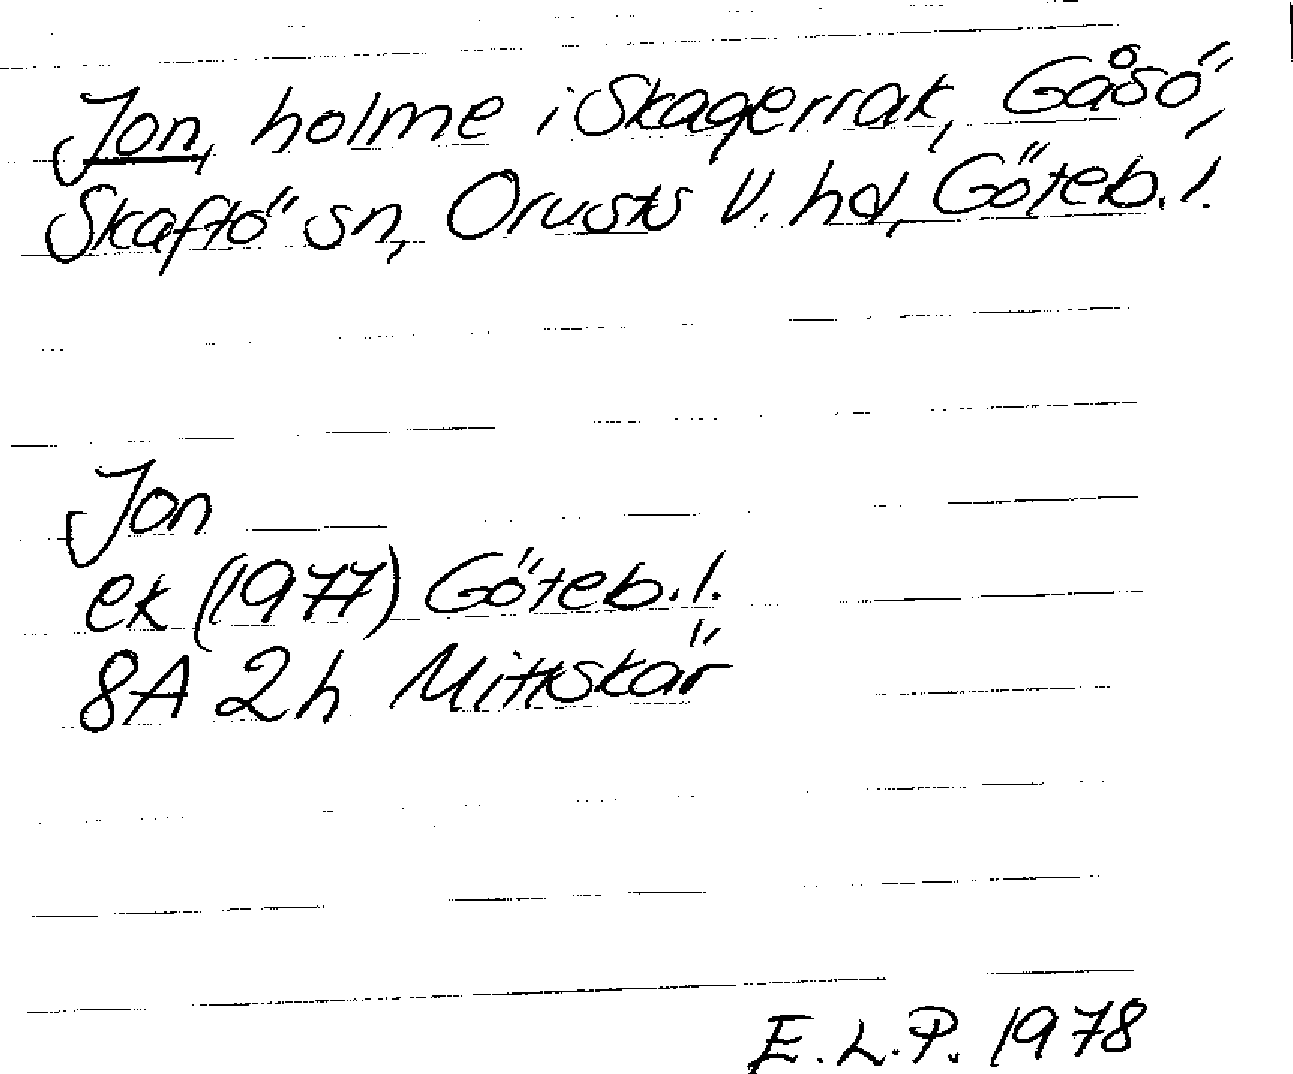 Jon, holme i Skagerrak, Gåsö,
Skaftö sn, Orusts V. hd, Göteb. l.
Jon
ek (1977) Göteb. l.
8A 2h Mittskär
E. L. P. 1978